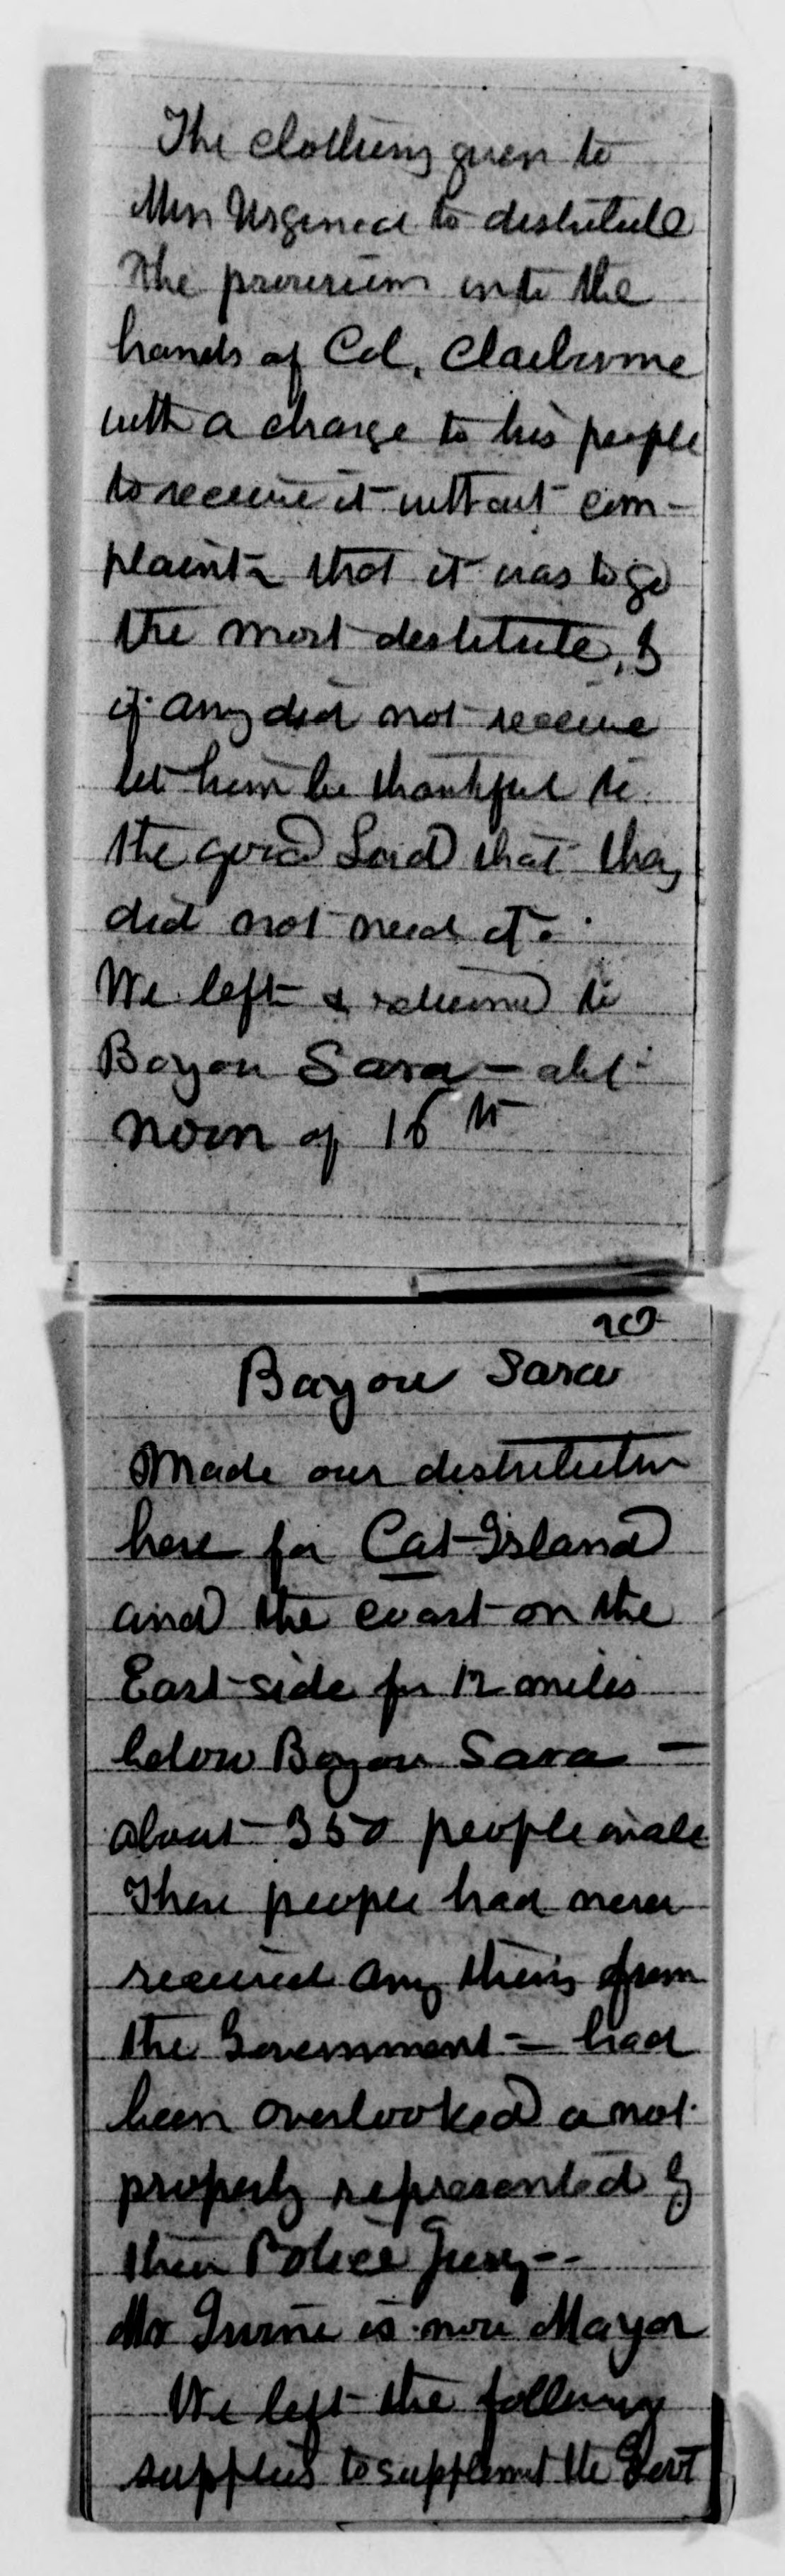 The clothing given to
to distribute
The provision into the
hands of Col. Claiborne
with a charge to his people
to receive it without com-
plaint - that it was to go
the most destitute, &
if any did not receive
let him be thankful to
the good Lord that they
did not need it.
We left & returned to
Bayou Sara - abt
noon of 16th
20
Bayou Sara
Made our distribution
here for Cat Island
and the coast on the
East side for 12 miles
below Bayou Sara -
about 350 people
These people had never
received any thing from
the Government - had
been overlooked or not
properly represented by
their Police Jury --
Mr Irvine is now Mayor
We left the following
supplies to supplement the Govt